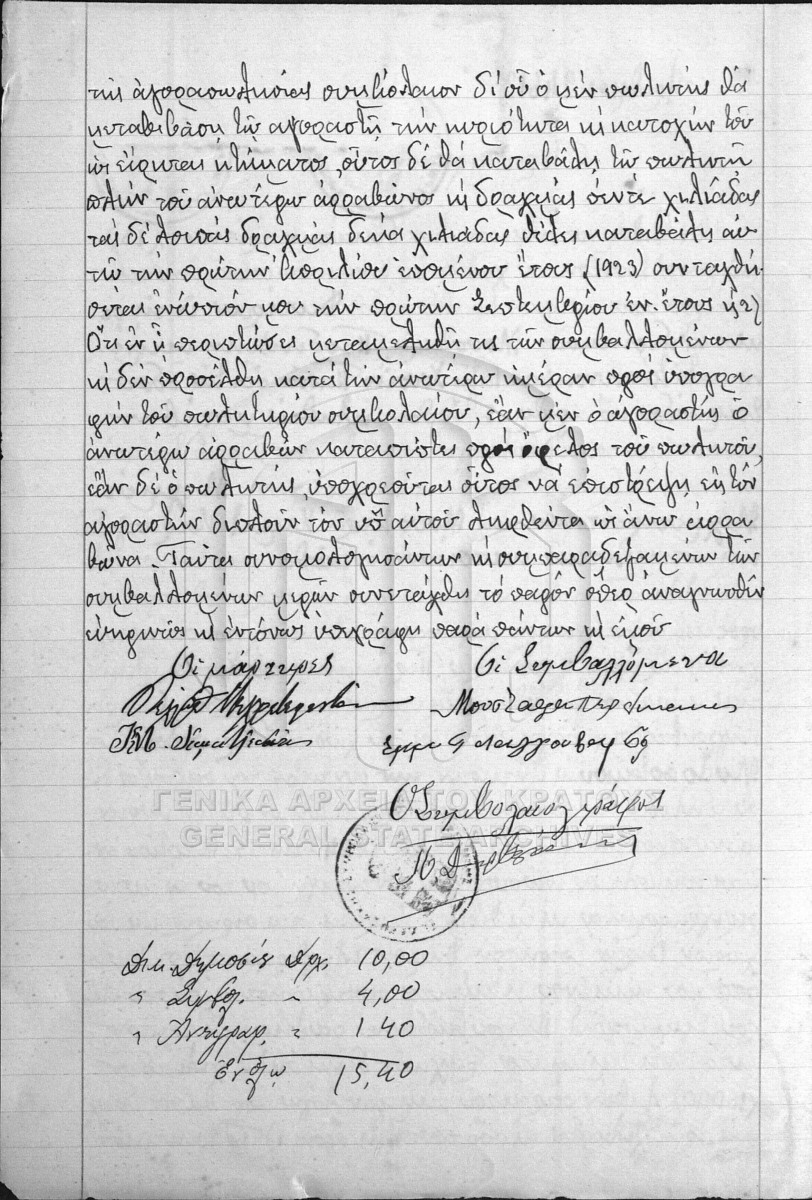 τῆς ἀγοραπωλησίας συμβόλαιον δι' οὗ ὁ μὲν πωλητὴς θὰ
μεταβιβάσῃ τῷ ἀγοραστῇ τὴν κυριότητα κ κατοχὴν τοῦ
ὡς εἴρηται κτήματος, οὗτος δὲ θὰ καταβάλῃ τῷ πωλητῇ
πλὴν τοῦ ἀνωτέρω ἀρραβῶνος κ δραχμὰς πέντε χιλιάδας
τὰς δὲ λοιπὰς δραχμὰς δέκα χιλιάδας θέλει καταβάλῃ αὐ
τῷ τὴν πρώτην Ἀπριλίου ἑπομένου ἔτους (1923) συνταχθή
σεται ἐνώπιόν μου τὴν πρώτην Σεπτεμβρίου ἐν. ἔτους κ 2)
Ὅτι ἐν ᾗ περιπτώσει μεταμεληθῇ τις τῶν συμβαλλομένων
κ δὲν προσέλθῃ κατὰ τὴν ἀνωτέρω ἡμέραν πρὸς ὑπογρα
φὴν τοῦ πωλητηρίου συμβολαίου, ἐὰν μὲν ὁ ἀγοραστὴς ὁ
ἀνωτέρω ἀρραβὼν καταπίπτει πρὸς ὄφελος τοῦ πωλητοῦ,
ἐὰν δὲ ὁ πωλητής, ὑποχρεοῦται οὗτος νὰ ἐπιστρέψῃ εἰς τὸν
ἀγοραστὴν διπλοῦν τὸν ὑπ' αὐτοῦ ληφθέντα ὡς ἄνω ἀρρα
βῶνα. Ταῦτα συνομολογησάντων κ συμπαραδεξαμένων τῶν
συμβαλλομένων μερῶν συνετάχθη τὸ παρὸν ὅπερ ἀναγνωσθὲν
εὐκρινῶς κ ἐντόνως ὑπεγράφη παρὰ πάντων κ ἐμοῦ
Οἱ μάρτυρες Οἱ Συμβαλλόμενοι
Μουσταφα
Ὁ Συμβολαιογράφος
ΓΕΝΙΚΑ ΑΡΧΕΙΑ ΤΟΥ ΚΡΑΤΟΥΣ
GENERAL STATE ARCHIVES
Δικ. Δημοσίου Δρχ. 10,00
" Συμβολ. " 4,00
" Ἀντιγραφ. " 1 40
Ἐν ὅλῳ 15,40